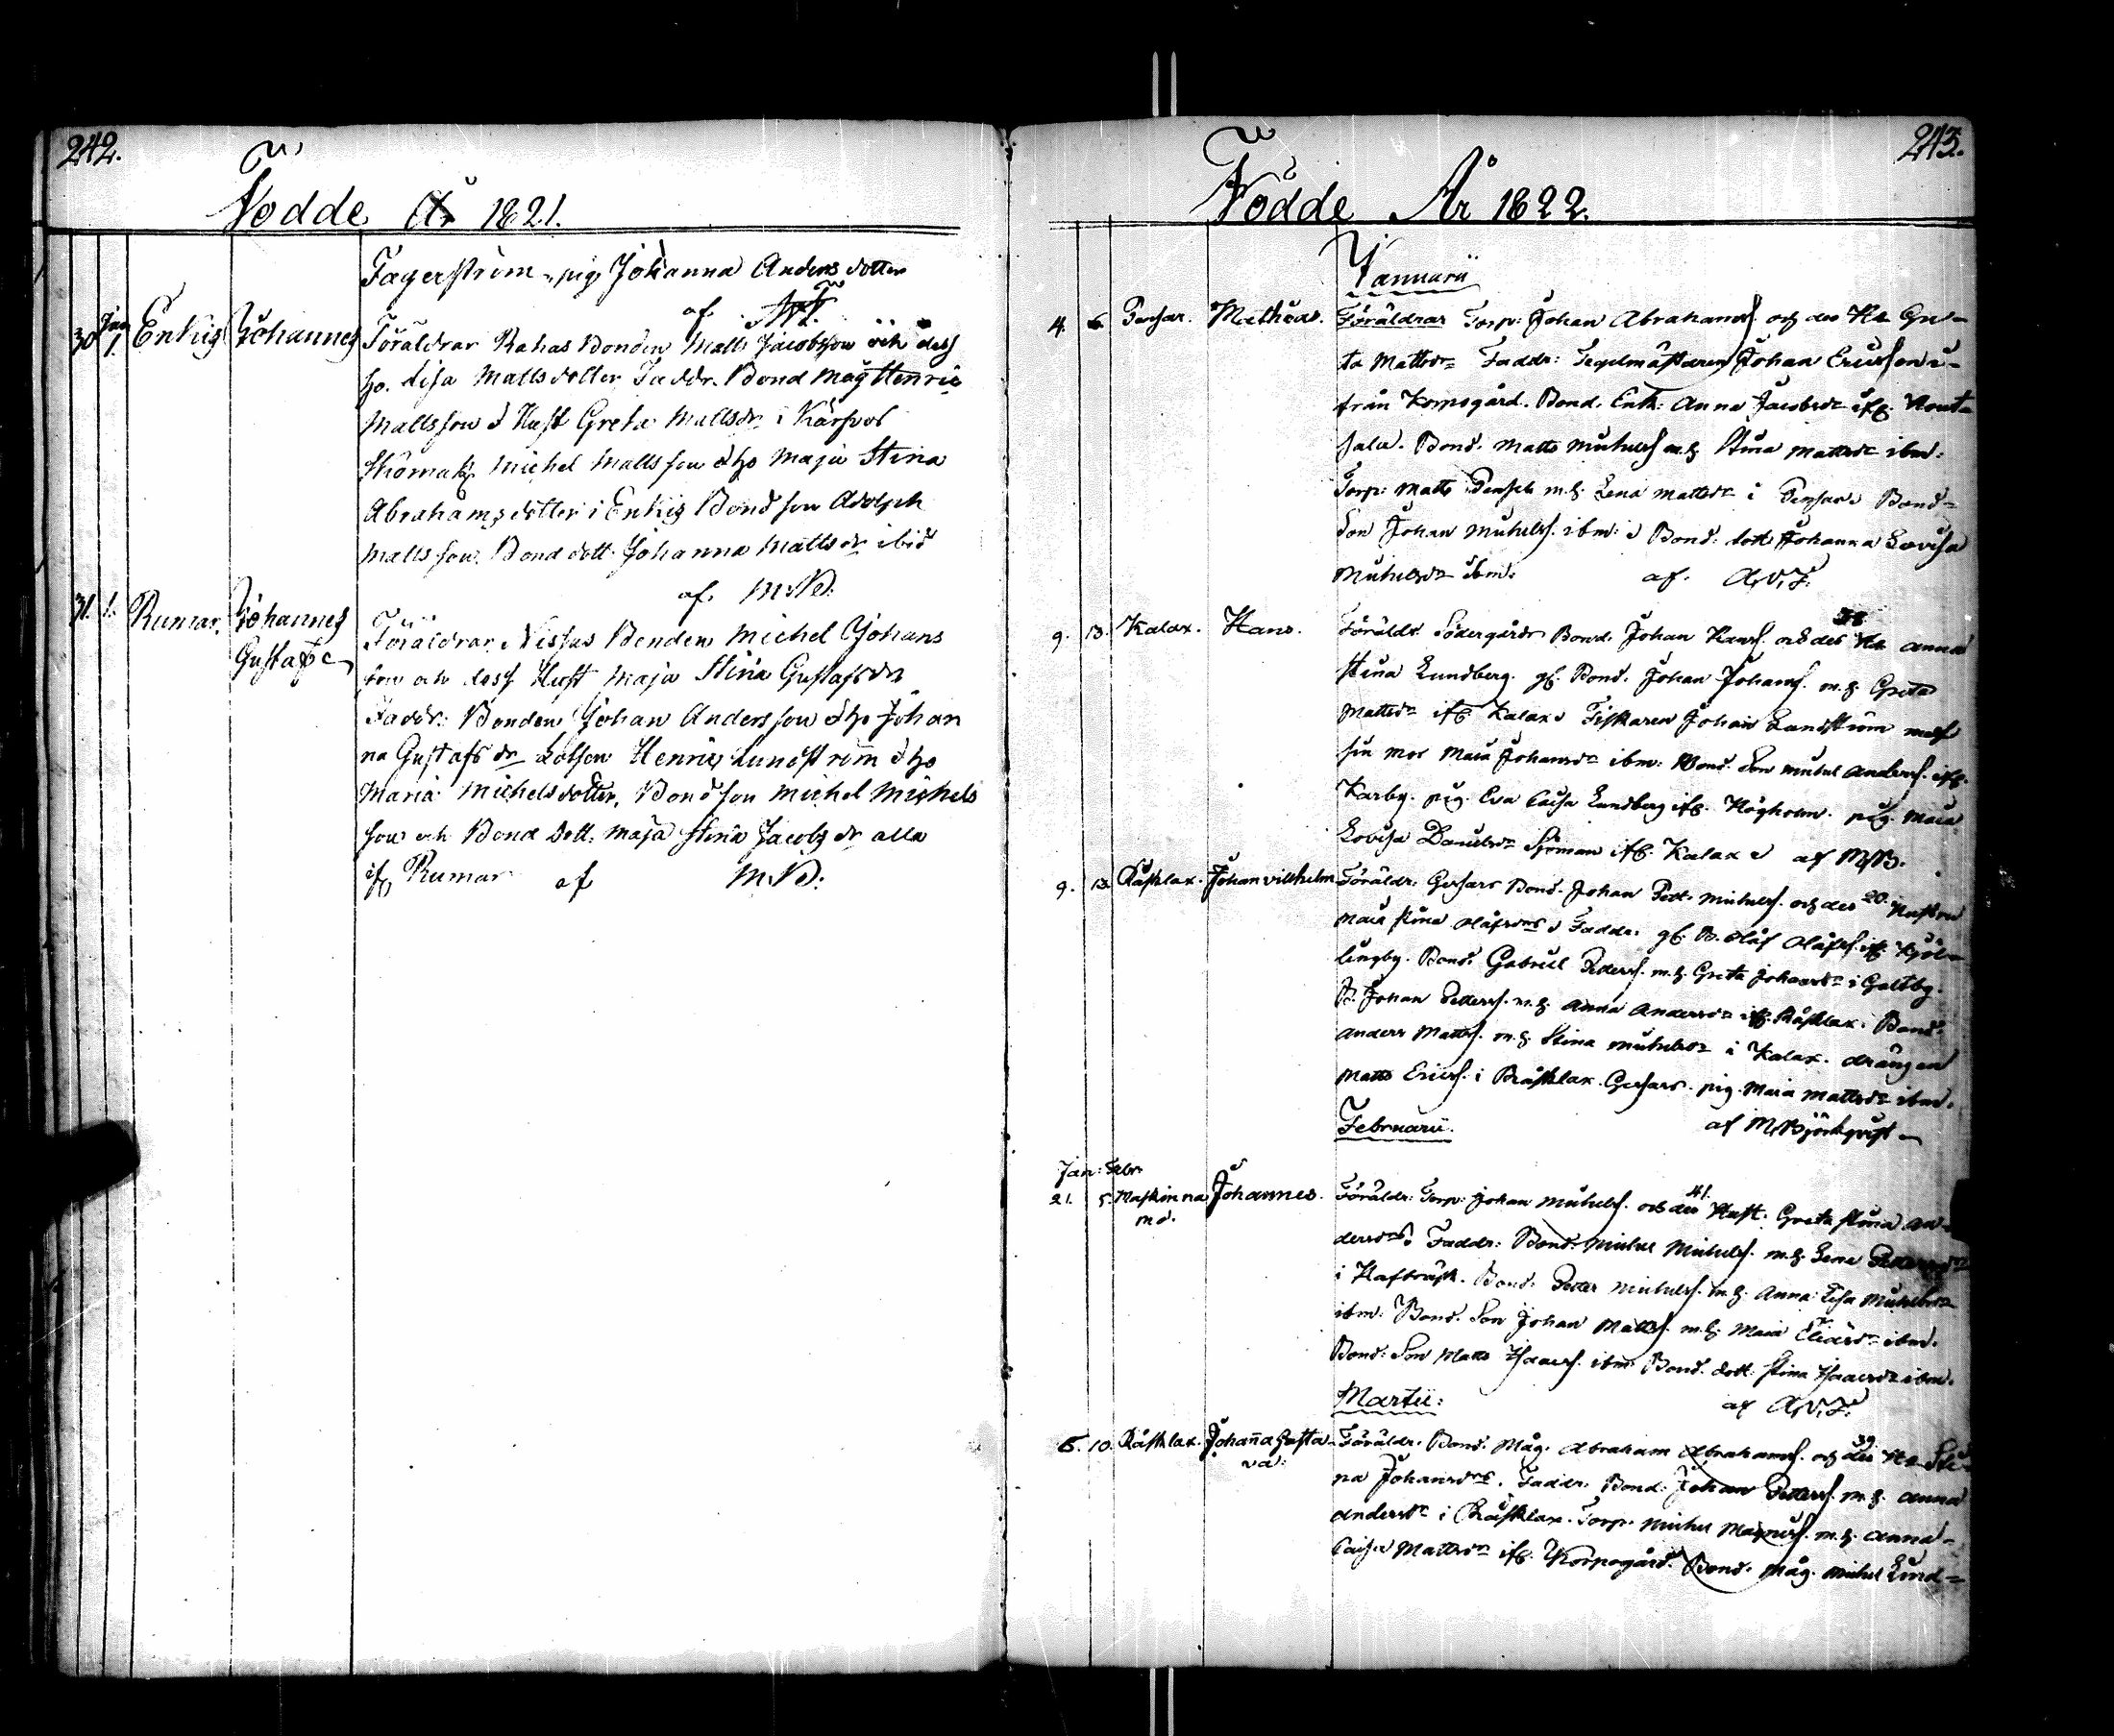 242.
Födde År 1821.
Fagerström, pig. Johanna Andersdotter
af
30 Jan 1. Enkis Johannes Föräldrar Rahas Bonden Matts Jacobsson och dess
ho. Lisa Mattsdotter Faddr. Bond Måg Henric
Mattsson & Hust Greta Mattsdr i Kärsvol
Michel Mattsson & ho Maja Stina
Abrahamsdotter i Enkis Bondson Adolph
Mattsson. Bond dott. Johanna Mattsdr ibid
af. M.B.
31. 1. Rumar. Johannes Gustaf Föräldrar Nissas Bonden Michel Johans
son och dess Hust Maja Stina Gustafsdr
Faddr: Bonden Johan Andersson & ho Johan
na Gustafsdr Lotsen Henric Lundström & ho
Maria Michelsdotter, Bondson Michel Michels
son och Bond Dott. Maja Stina Jacobsdr alla
ifr Rumar af M.B:
243.
Födde År 1822.
Januarii
4. 6. Pensar. Mathias. Föräldrar Torp: Johan Abrahamss. och des Hu Gre-
ta Mattsdr Faddr: Tegelmästaren Johan Ericsson i-
från Korpogård. Bond. Enk: Anna Jacobsdr ifr.
Bond. Matts Michelss m.h. Stina Mattsdr ibm.
Torp: Matts m.h. Lena Mattsdr i Pensar Bond-
Son Johan Michelss. ibm: Bond: dott Johanna Lovisa
Michelsdr ibm. af.
9. 13. Kalax. Hans. Föräldr. Södergårds Bond. Johan Hanss. och des Hu Anna
Stina Lundberg. gf. Bond. Johan Johanss. m.h. Greta
Mattsdr ifr Kalax Fiskaren Johan Landström med
sin mor Maia Johansdr ibm: Bond. Son Michel Anderss. ifr.
Karby. pig. Eva Caisa Lundberg ifr. Högholm. pig. Maia
Lovisa Danielsdr Sjöman ifr. Kalax af M.B.
9. 13. Råsklax. Johan Villhelm Föräldr. Gersars Bond. Johan Pett. Michelss. och des 20. Hustru
Maia Stina Olafsdr Faddr. gf. B. Olaf Olafss. ifr. Kjöl-
lingby. Bond. Gabriel Petterss. m.h. Greta Johansdr i Galtby.
B. Johan Petterss. m.h. Anna Andersdr ifr. Råsklax. Bond.
Anders Mattss. m.h. Stina Michelsdr i Kalax. drängen
Matts Ericss. i Råsklax. Gersars. pig. Maia Mattsdr ibm.
af M. Björkqvist
Februarii.
Jan: Febr:
21. 5. Johannes. Föräldr: Torp: Johan Michelss. och des 41. Hust. Greta Stina An-
dersdr. Faddr: Bond. Michel Michelss. m.h. Lena Pettersdr
i Kafträsk. Bond. Petter Michelss. m.h. Anna Lisa Michelsdr
ibm: Bond. Son Johan Mattss. m.h. Maia Eliasdr ibm.
Bond: Son Matts Isacss. ibm: Bond. dott. Stina Isacsdr ibm.
af
Martii:
5. 10. Råsklax. Johanna Gusta-
va: Föräldr. Bond. Måg. Abraham Abrahamss. och des 39 Hu Sti-
na Johansdr. Faddr. Bond. Johan Petterss. m.h. Anna
Andersdr i Råsklax. Torp. Michel Magnuss. m.h. Anna-
Caisa Mattsdr ifr. Korpogård. Bond. Måg. Michel Lind-